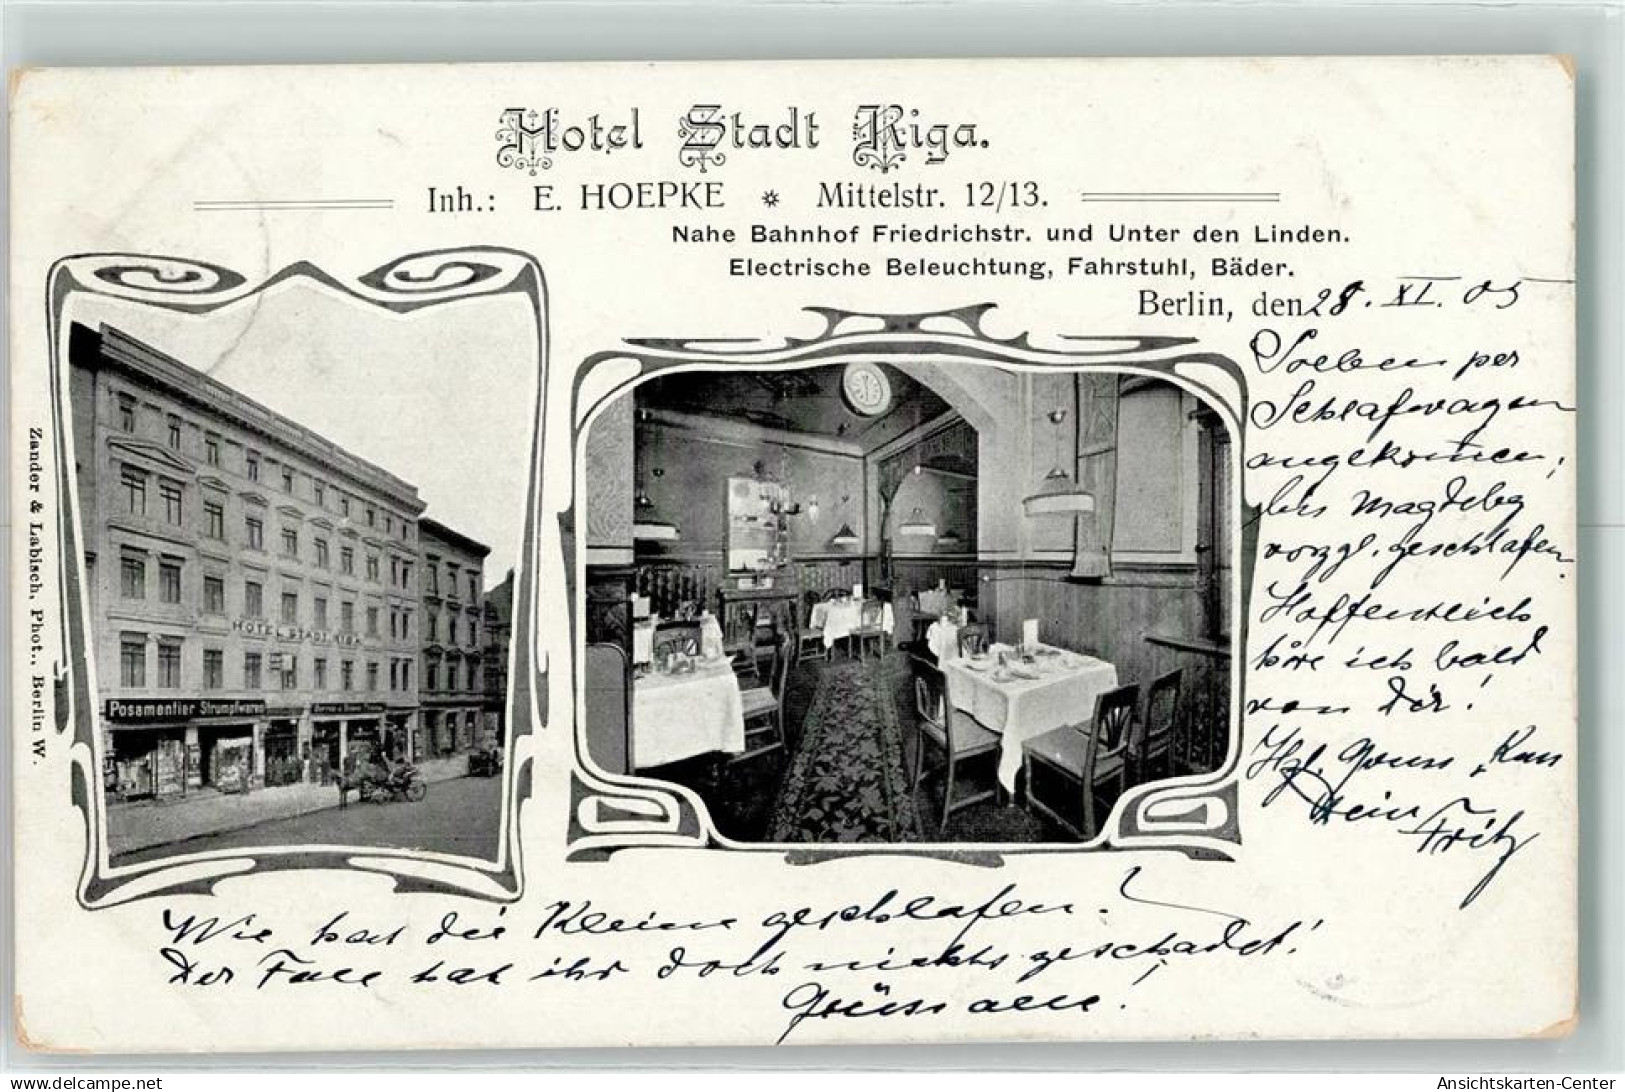 Hotel Stadt Riga.
Inh.: E. HOEPKE * Mittelstr. 12/13.
Nahe Bahnhof Friedrichstr. und Unter den Linden.
Electrische Beleuchtung, Fahrstuhl, Bäder.
Berlin, den 28. XI. 05
Soeben per
Schlafwagen
angekommen,
bis Magdebg
vorzgl. geschlafen.
Hoffentlich
höre ich bald
von Dir!
Hzl. Gruss, Kuss
Dein Fritz
Wie hat die Kleine geschlafen?
Der Fall hat ihr doch nichts geschadet!
Grüsse alle!
HOTEL STADT RIGA
Posamentier Strumpfwaren
Zander & Labisch, Phot., Berlin W.
www.delcampe.net
Ansichtskarten-Center